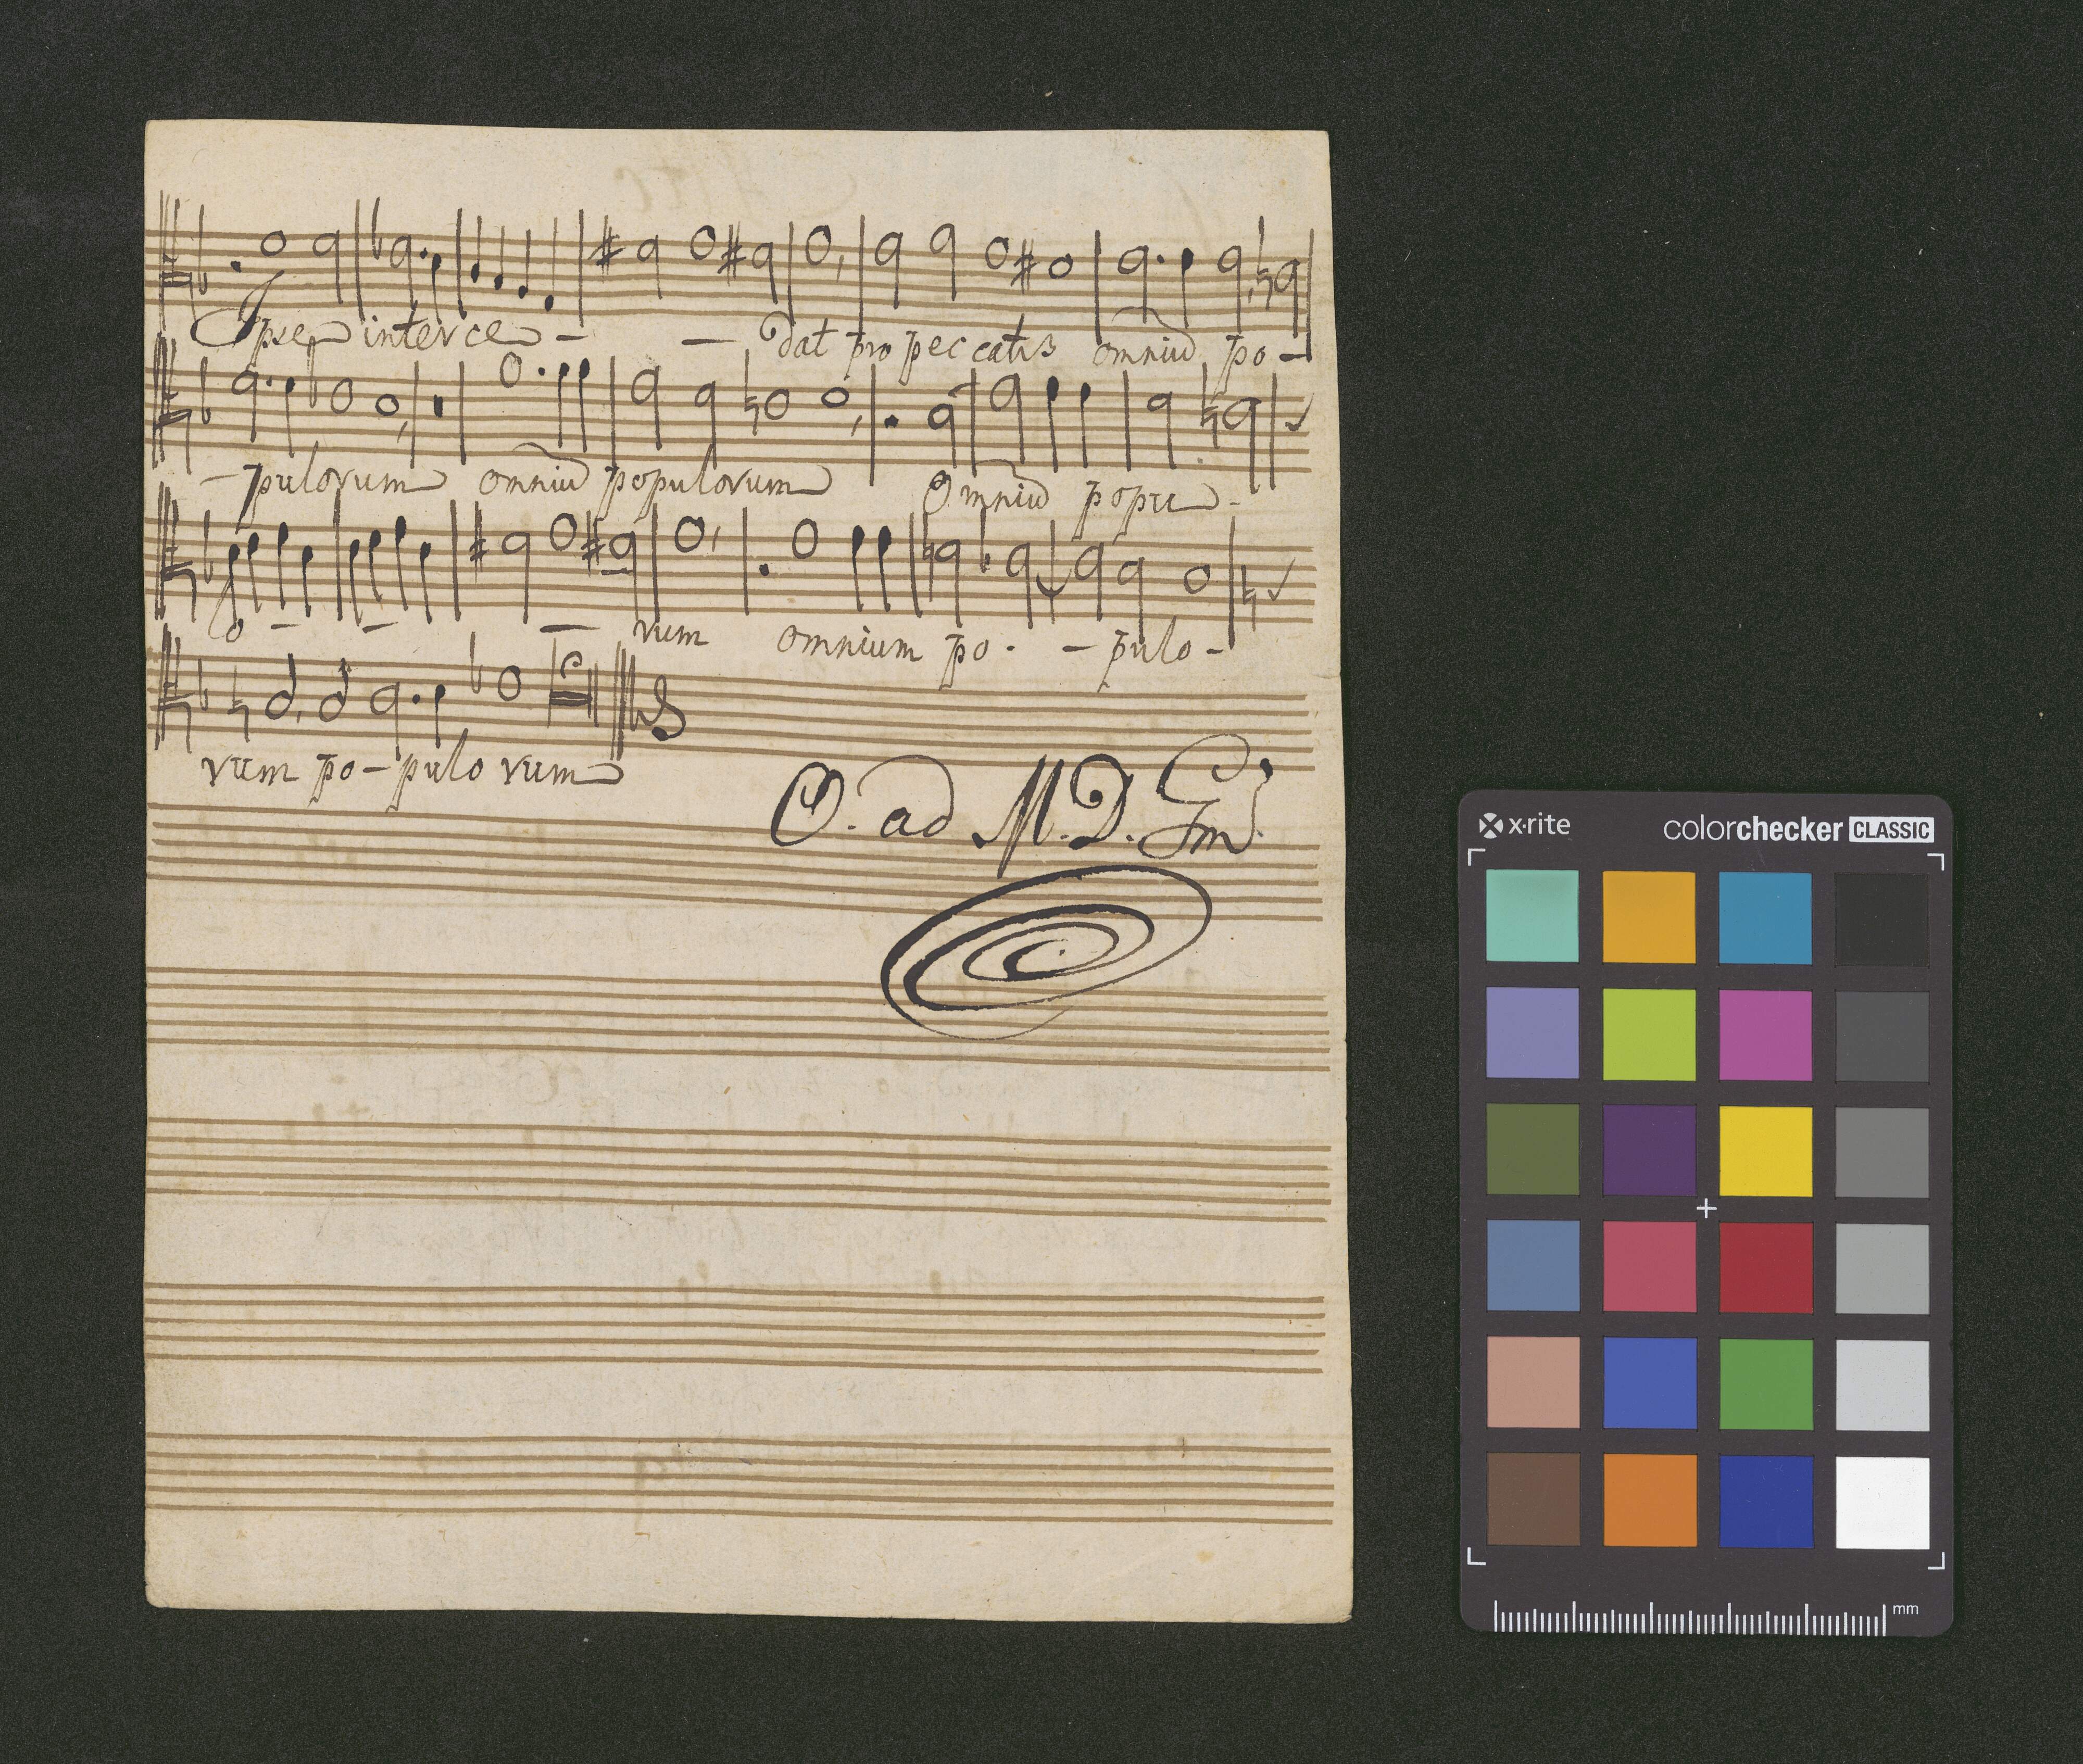 Ipse interce - - dat pro peccatis omniū po-
-pulorum omniū populorum Omniū popu-
lo - - - rum omnium po - - pulo-
rum po-pulo rum
O. ad M. D. Gm.
x·rite colorchecker CLASSIC
mm